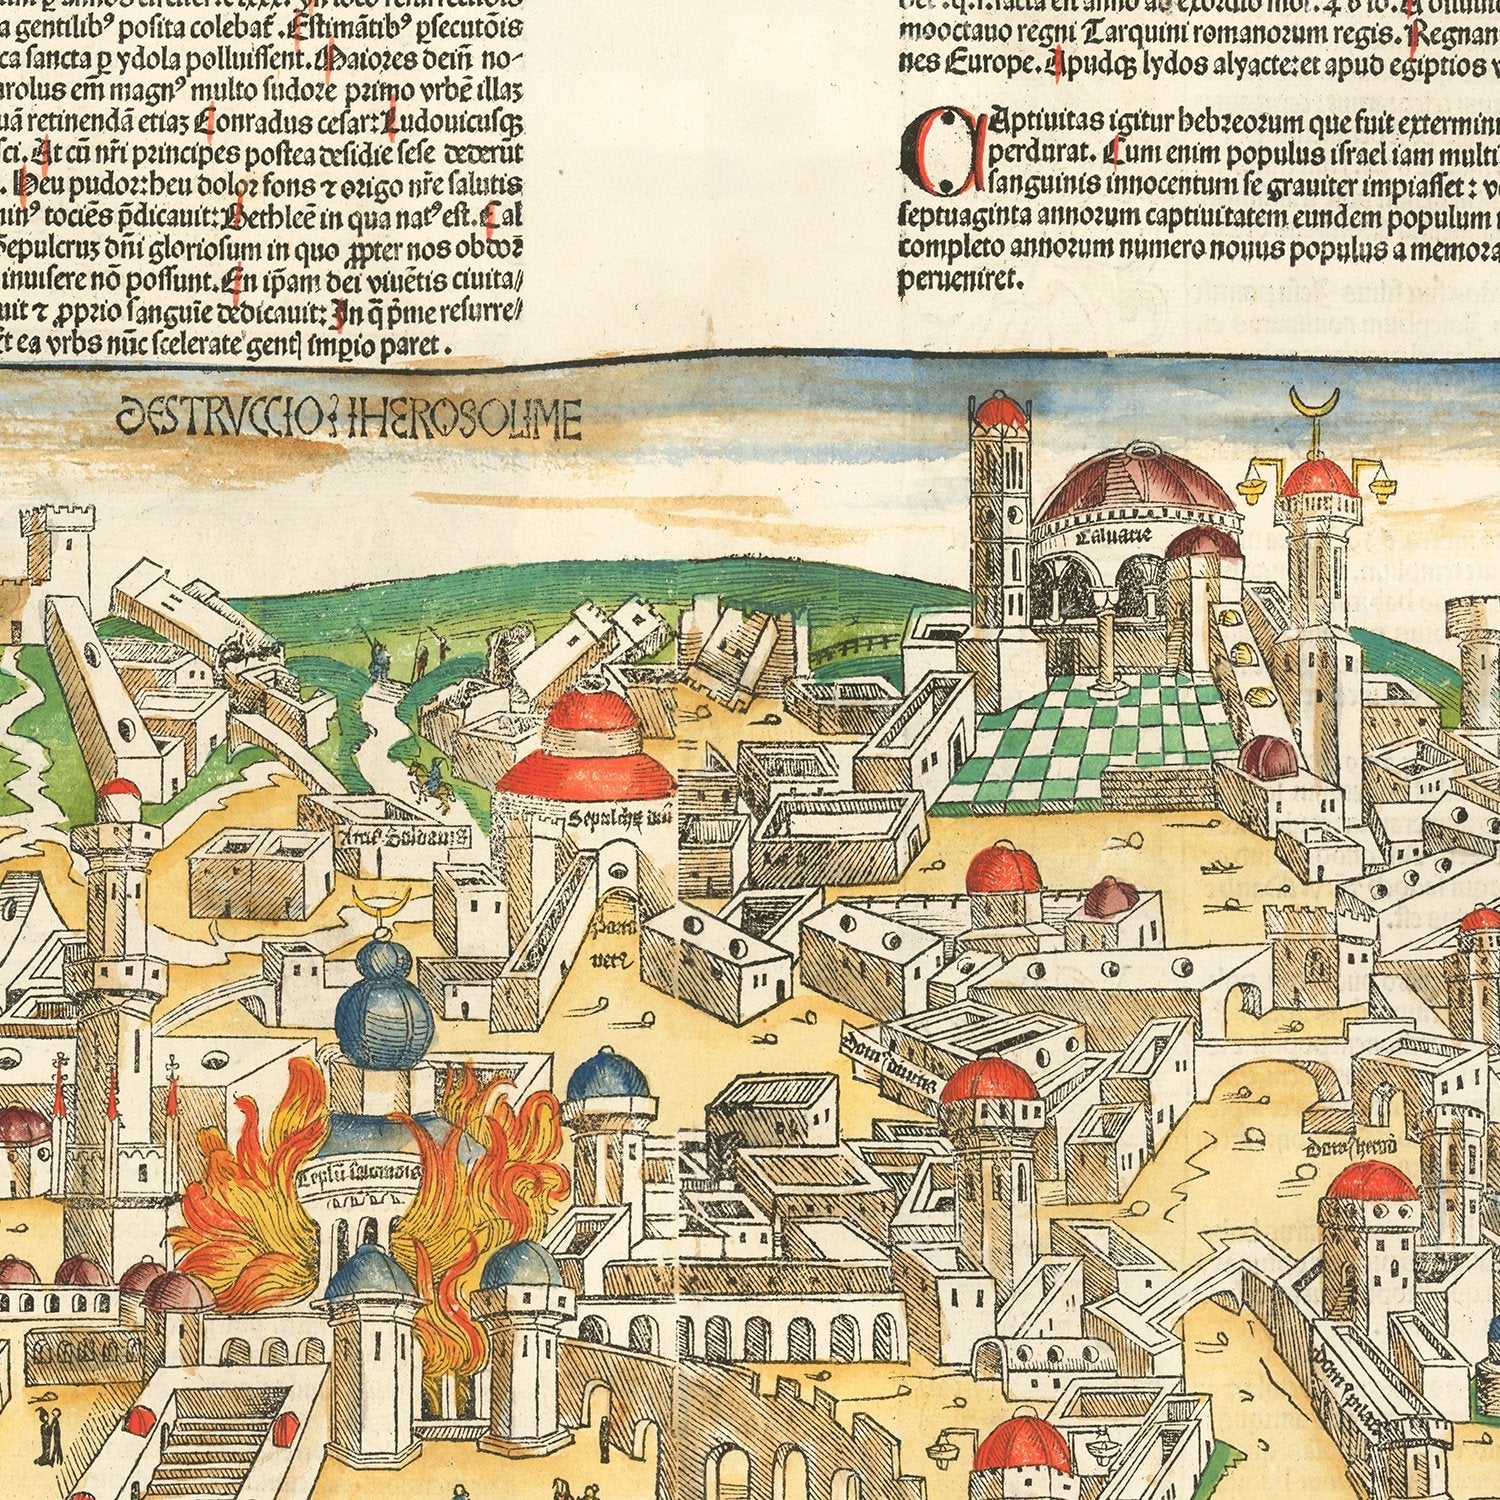 a gentilibꝰ posita colebaṫ. Estimãtibꝰ ꝑsecutõis
ca sancta ꝑ ydola polluissent. Maiores dein̄ no-
arolus em̄ magnꝰ multo sudore primo vrbẽ illaꝫ
uã retinendã etiaꝫ Conradus cesar: Ludouicusqꝫ
sci. At cũ nr̄i principes postea desidie sese dederũt
. Heu pudor: heu dolor fons ⁊ origo nr̄e salutis
tociẽs p̄dicauit: Bethleẽ in qua natꝰ est. Cal
sepulcruꝫ dñi gloriosum in quo ꝓpter nos obdor̄
inuisere nõ possunt. En ip̄am dei viuẽtis ciuita/
uit ⁊ ꝓprio sanguĩe dedicauit: In q̄ p̄me resurre/
t ea vrbs nũc scelerate gentꝭ imꝑio paret.
mooctauo regni Tarquini romanorum regis. Regnan
nes Europe. Apudqꝫ lydos alyacte: et apud egiptios
CAptiuitas igitur hebreorum que fuit extermin
perdurat. Cum enim populus israel iam multi
sanguinis innocentum se grauiter impiasset:
septuaginta annorum captiuitatem eundem populum
completo annorum numero nouus populus a memora
perueniret.
DESTRVCCIO IHEROSOLIME
Caluarie
Sepulchꝝ dñi
Porta
Domꝰ
Domꝰ pilati